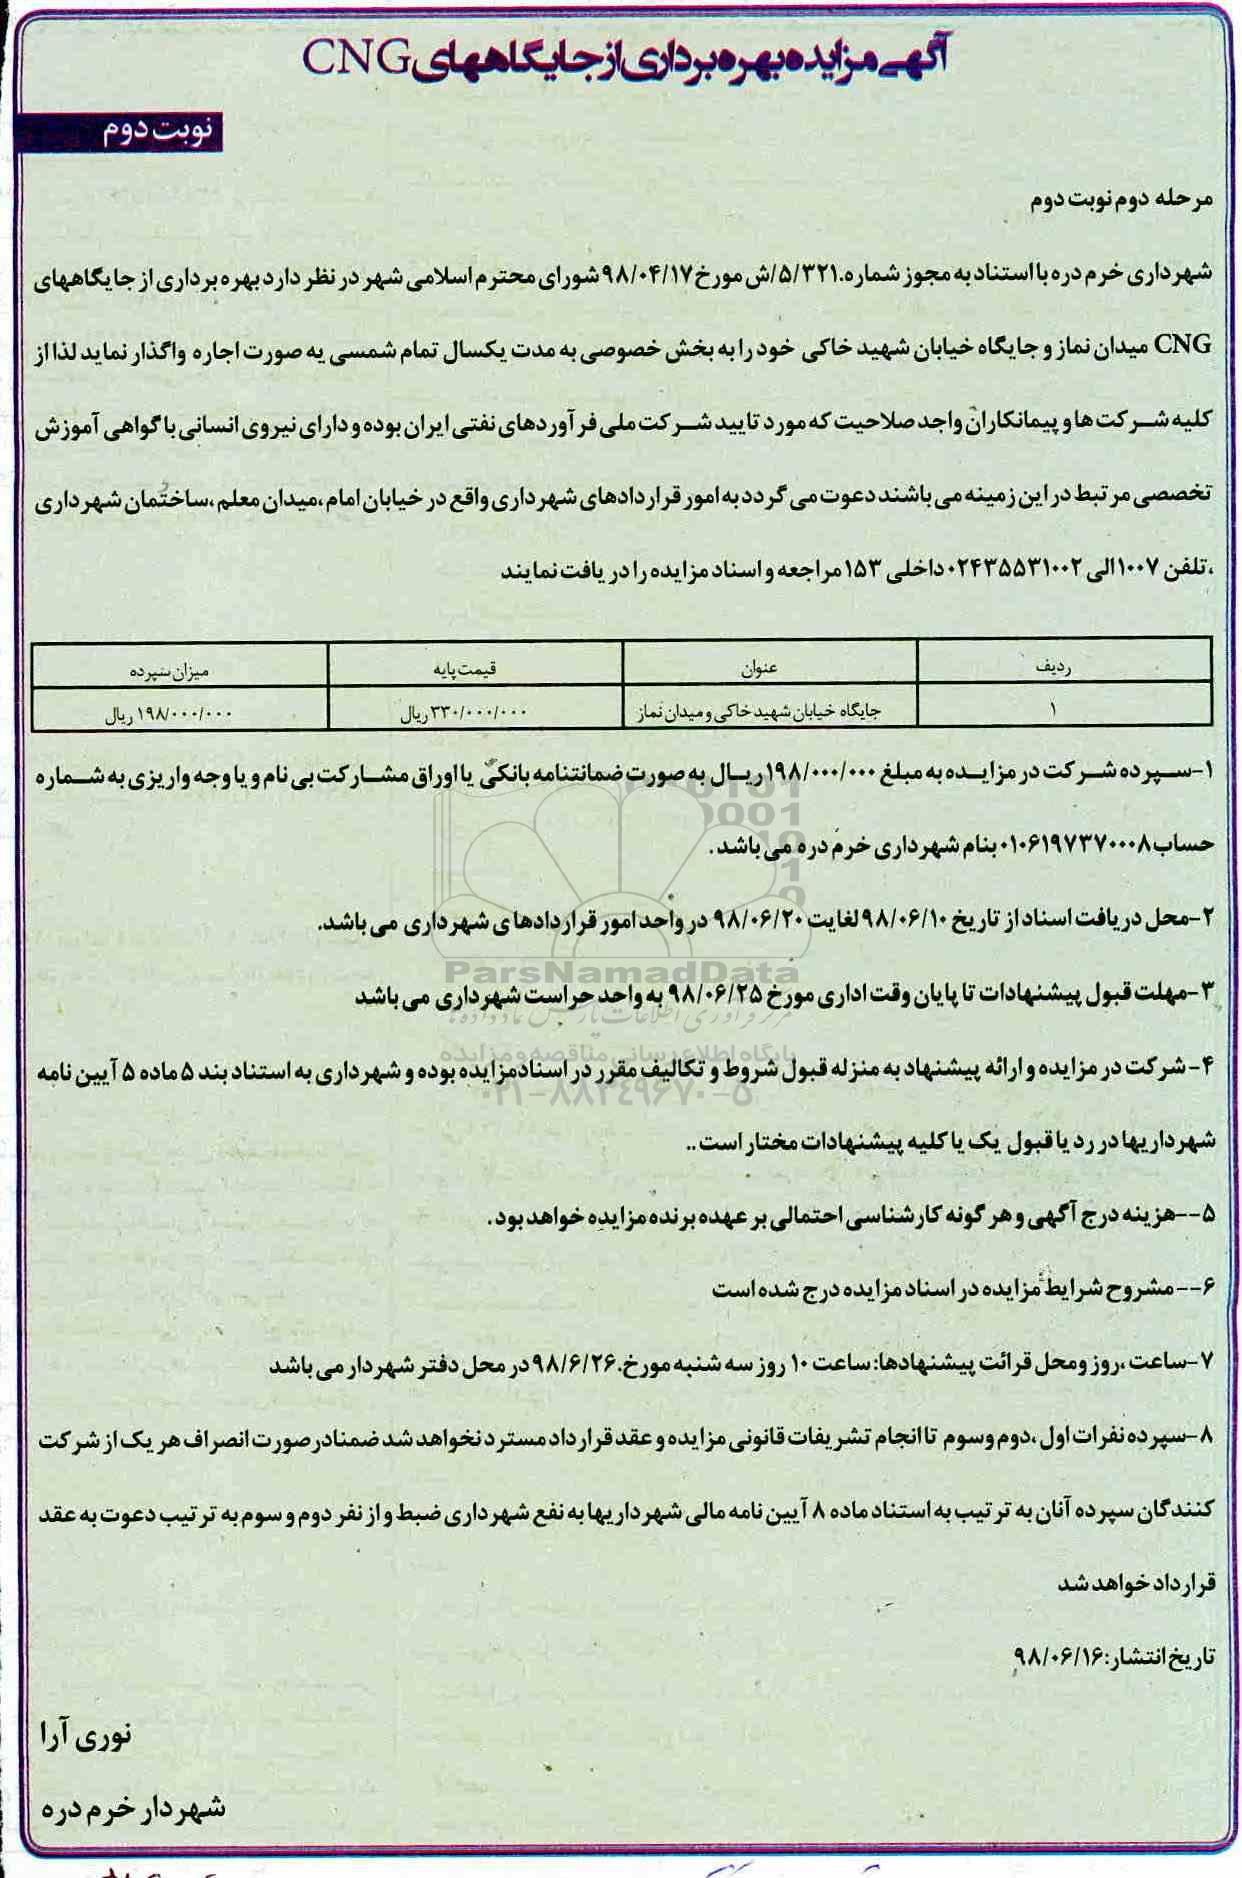 آگهی مزایده بهره برداری از جایگاههای CNG
نوبت دوم
مرحله دوم نوبت دوم
شهرداری خرم دره با استناد به مجوز شماره.۵/۳۲۱/ش مورخ ۹۸/۰۴/۱۷ شورای محترم اسلامی شهر در نظر دارد بهره برداری از جایگاههای
CNG میدان نماز و جایگاه خیابان شهید خاکی خود را به بخش خصوصی به مدت یکسال تمام شمسی یه صورت اجاره واگذار نماید لذا از
کلیه شرکت ها و پیمانکاران واجد صلاحیت که مورد تایید شرکت ملی فرآوردهای نفتی ایران بوده و دارای نیروی انسانی با گواهی آموزش
تخصصی مرتبط در این زمینه می باشند دعوت می گردد به امور قراردادهای شهرداری واقع در خیابان امام ،میدان معلم ،ساختمان شهرداری
،تلفن ۱۰۰۷ الی ۰۲۴۳۵۵۳۱۰۰۲ داخلی ۱۵۳ مراجعه و اسناد مزایده را دریافت نمایند
ردیف عنوان قیمت پایه میزان سپرده
۱ جایگاه خیابان شهید خاکی و میدان نماز ۳۳۰/۰۰۰/۰۰۰ ریال ۱۹۸/۰۰۰/۰۰۰ ریال
۱-سپرده شرکت در مزایده به مبلغ ۱۹۸/۰۰۰/۰۰۰ ریال به صورت ضمانتنامه بانکی یا اوراق مشارکت بی نام و یا وجه واریزی به شماره
حساب ۰۱۰۶۱۹۷۳۷۰۰۰۸ بنام شهرداری خرم دره می باشد .
۲-محل دریافت اسناد از تاریخ ۹۸/۰۶/۱۰ لغایت ۹۸/۰۶/۲۰ در واحد امور قراردادهای شهرداری می باشد.
ParsNamadData
۳-مهلت قبول پیشنهادات تا پایان وقت اداری مورخ ۹۸/۰۶/۲۵ به واحد حراست شهرداری می باشد
مرکز فرآوری اطلاعات پارس نماد داده ها
پایگاه اطلاع رسانی مناقصه و مزایده
۴-شرکت در مزایده و ارائه پیشنهاد به منزله قبول شروط و تکالیف مقرر در اسناد مزایده بوده و شهرداری به استناد بند ۵ ماده ۵ آیین نامه
۰۲۱-۸۸۳۴۹۶۷۰-۵
شهرداریها در رد یا قبول یک یا کلیه پیشنهادات مختار است..
۵--هزینه درج آگهی و هر گونه کارشناسی احتمالی بر عهده برنده مزایده خواهد بود .
۶--مشروح شرایط مزایده در اسناد مزایده درج شده است
۷-ساعت ،روز و محل قرائت پیشنهادها: ساعت ۱۰ روز سه شنبه مورخ.۹۸/۶/۲۶ در محل دفتر شهردار می باشد
۸-سپرده نفرات اول ،دوم و سوم تا انجام تشریفات قانونی مزایده و عقد قرارداد مسترد نخواهد شد ضمنا در صورت انصراف هر یک از شرکت
کنندگان سپرده آنان به ترتیب به استناد ماده ۸ آیین نامه مالی شهرداریها به نفع شهرداری ضبط و از نفر دوم و سوم به ترتیب دعوت به عقد
قرارداد خواهد شد
تاریخ انتشار: ۹۸/۰۶/۱۶
نوری آرا
شهردار خرم دره